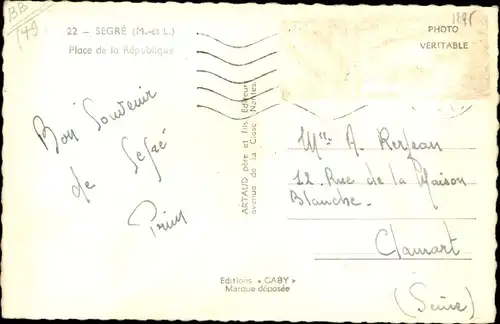 BB
149
22 - SEGRÉ (M.-et L.)
Place de la République
PHOTO
VÉRITABLE
Bon Souvenir
de Segré
ARTAUD père et fils Editeur
avenue de la Close Nantes
Mlle A.
12. Rue de la Maison
Blanche.
Clamart
(Seine)
Editions « GABY »
Marque déposée